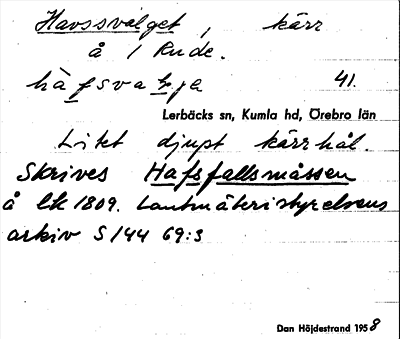 Havssvalget, kärr
å 1 Rude.
hàfsvalje 41.
Lerbäcks sn, Kumla hd, Örebro län
Litet djupt kärrhål.
Skrives Hafsfallsmåssen
å lk 1809. Lantmäteristyrelsens
arkiv S 144 69:3
Dan Höjdestrand 1958